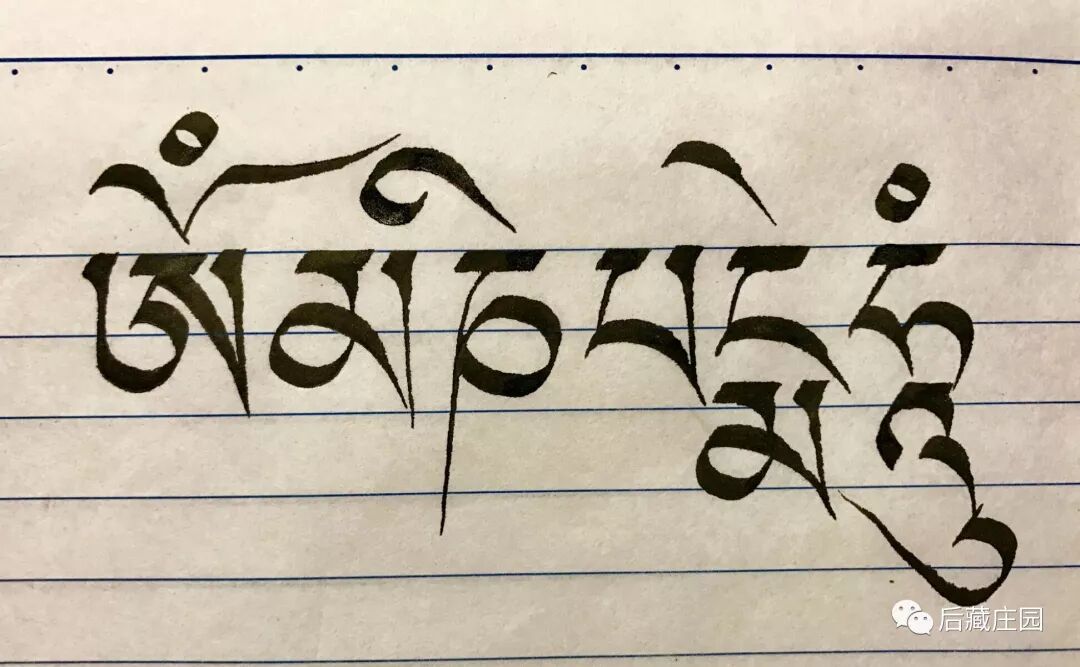 ཨོཾ མ ཎི པ དྨེ ཧཱུྃ
后藏庄园